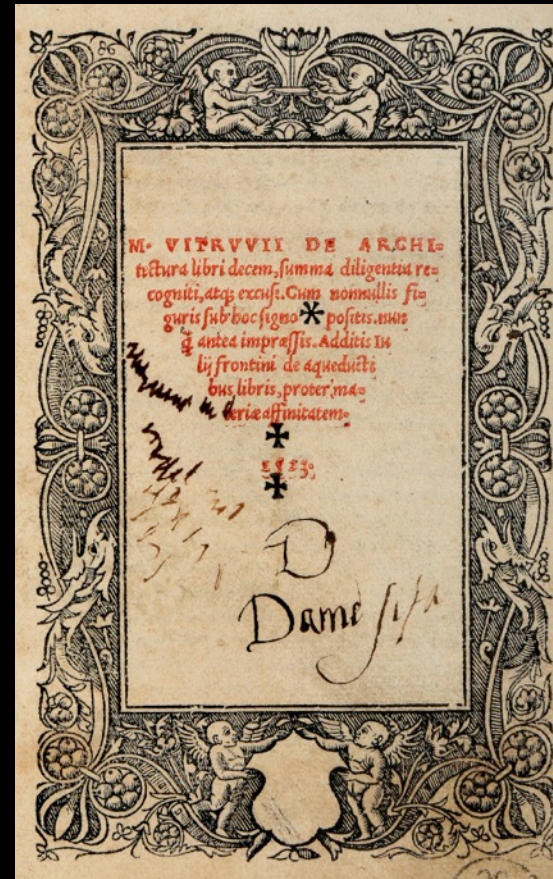 M. VITRVVII DE ARCHI=
tectura libri decem, summa diligentia re=
cogniti, atq; excusi. Cum nonnullis fi=
guris sub hoc signo * positis. nun
q̃ antea impræssis. Additis Iu
lij frontini de aqueductibus libris, proter, ma=
teriæ affinitatem.
1523.
D
Dame